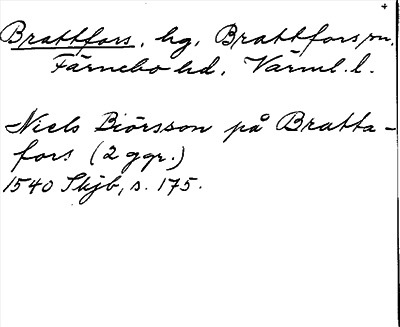 Brattfors, hg, Brattfors sn,
Färnebo hd, Värml. l.
Niels Biörsson på Bratta-
fors (2 ggr.)
1540 Skjb, s. 175.